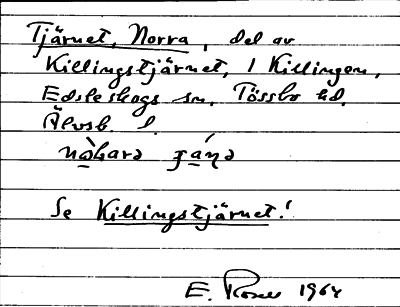 Tjärnet, Norra, del av
Killingstjärnet, i Killingen,
Edsleskogs sn. Tössbo hd.
Älvsb. l.
Se Killingstjärnet!
E. 1964